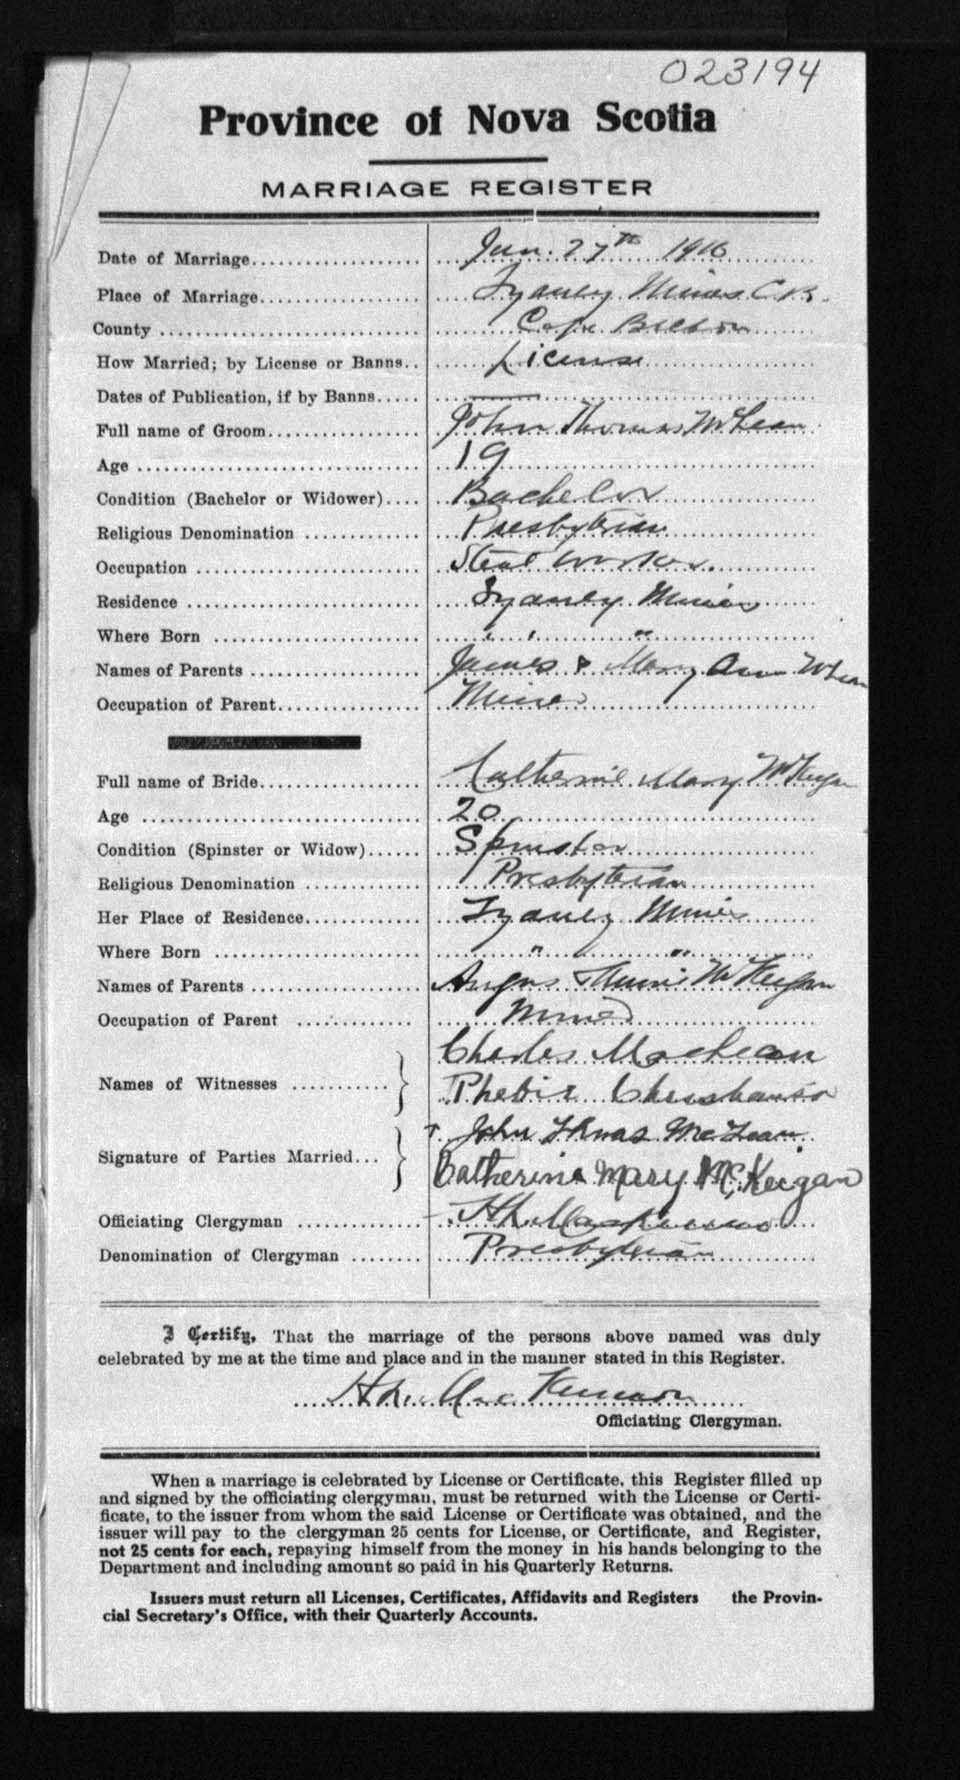 023194
Province of Nova Scotia
MARRIAGE REGISTER
Date of Marriage.................... Jan. 27th 1916
Place of Marriage................... Sydney Mines C.B.
County ............................. Cape Breton
How Married; by License or Banns.. License
Dates of Publication, if by Banns..... ——
Full name of Groom.................. John Thomas McLean
Age ................................ 19
Condition (Bachelor or Widower).... Bachelor
Religious Denomination ............. Presbyterian
Occupation ......................... Steel Worker.
Residence .......................... Sydney Mines
Where Born ......................... " " "
Names of Parents ................... James & Mary Ann McLean
Occupation of Parent................ Miner
Full name of Bride.................. Catherine Mary McKeigan
Age ................................ 20
Condition (Spinster or Widow)...... Spinster
Religious Denomination ............. Presbyterian
Her Place of Residence.............. Sydney Mines
Where Born ......................... " "
Names of Parents ................... Angus McKeigan
Occupation of Parent ............. Miner
Names of Witnesses ........... } Charles MacLean
Phebie
Signature of Parties Married... } John McLean
Catherine Mary McKeigan
Officiating Clergyman .............
Denomination of Clergyman ........ Presbyterian
I Certify, That the marriage of the persons above named was duly
celebrated by me at the time and place and in the manner stated in this Register.
MacKinnon
Officiating Clergyman.
When a marriage is celebrated by License or Certificate, this Register filled up
and signed by the officiating clergyman, must be returned with the License or Certi-
ficate, to the issuer from whom the said License or Certificate was obtained, and the
issuer will pay to the clergyman 25 cents for License, or Certificate, and Register,
not 25 cents for each, repaying himself from the money in his hands belonging to the
Department and including amount so paid in his Quarterly Returns.
Issuers must return all Licenses, Certificates, Affidavits and Registers the Provin-
cial Secretary's Office, with their Quarterly Accounts.